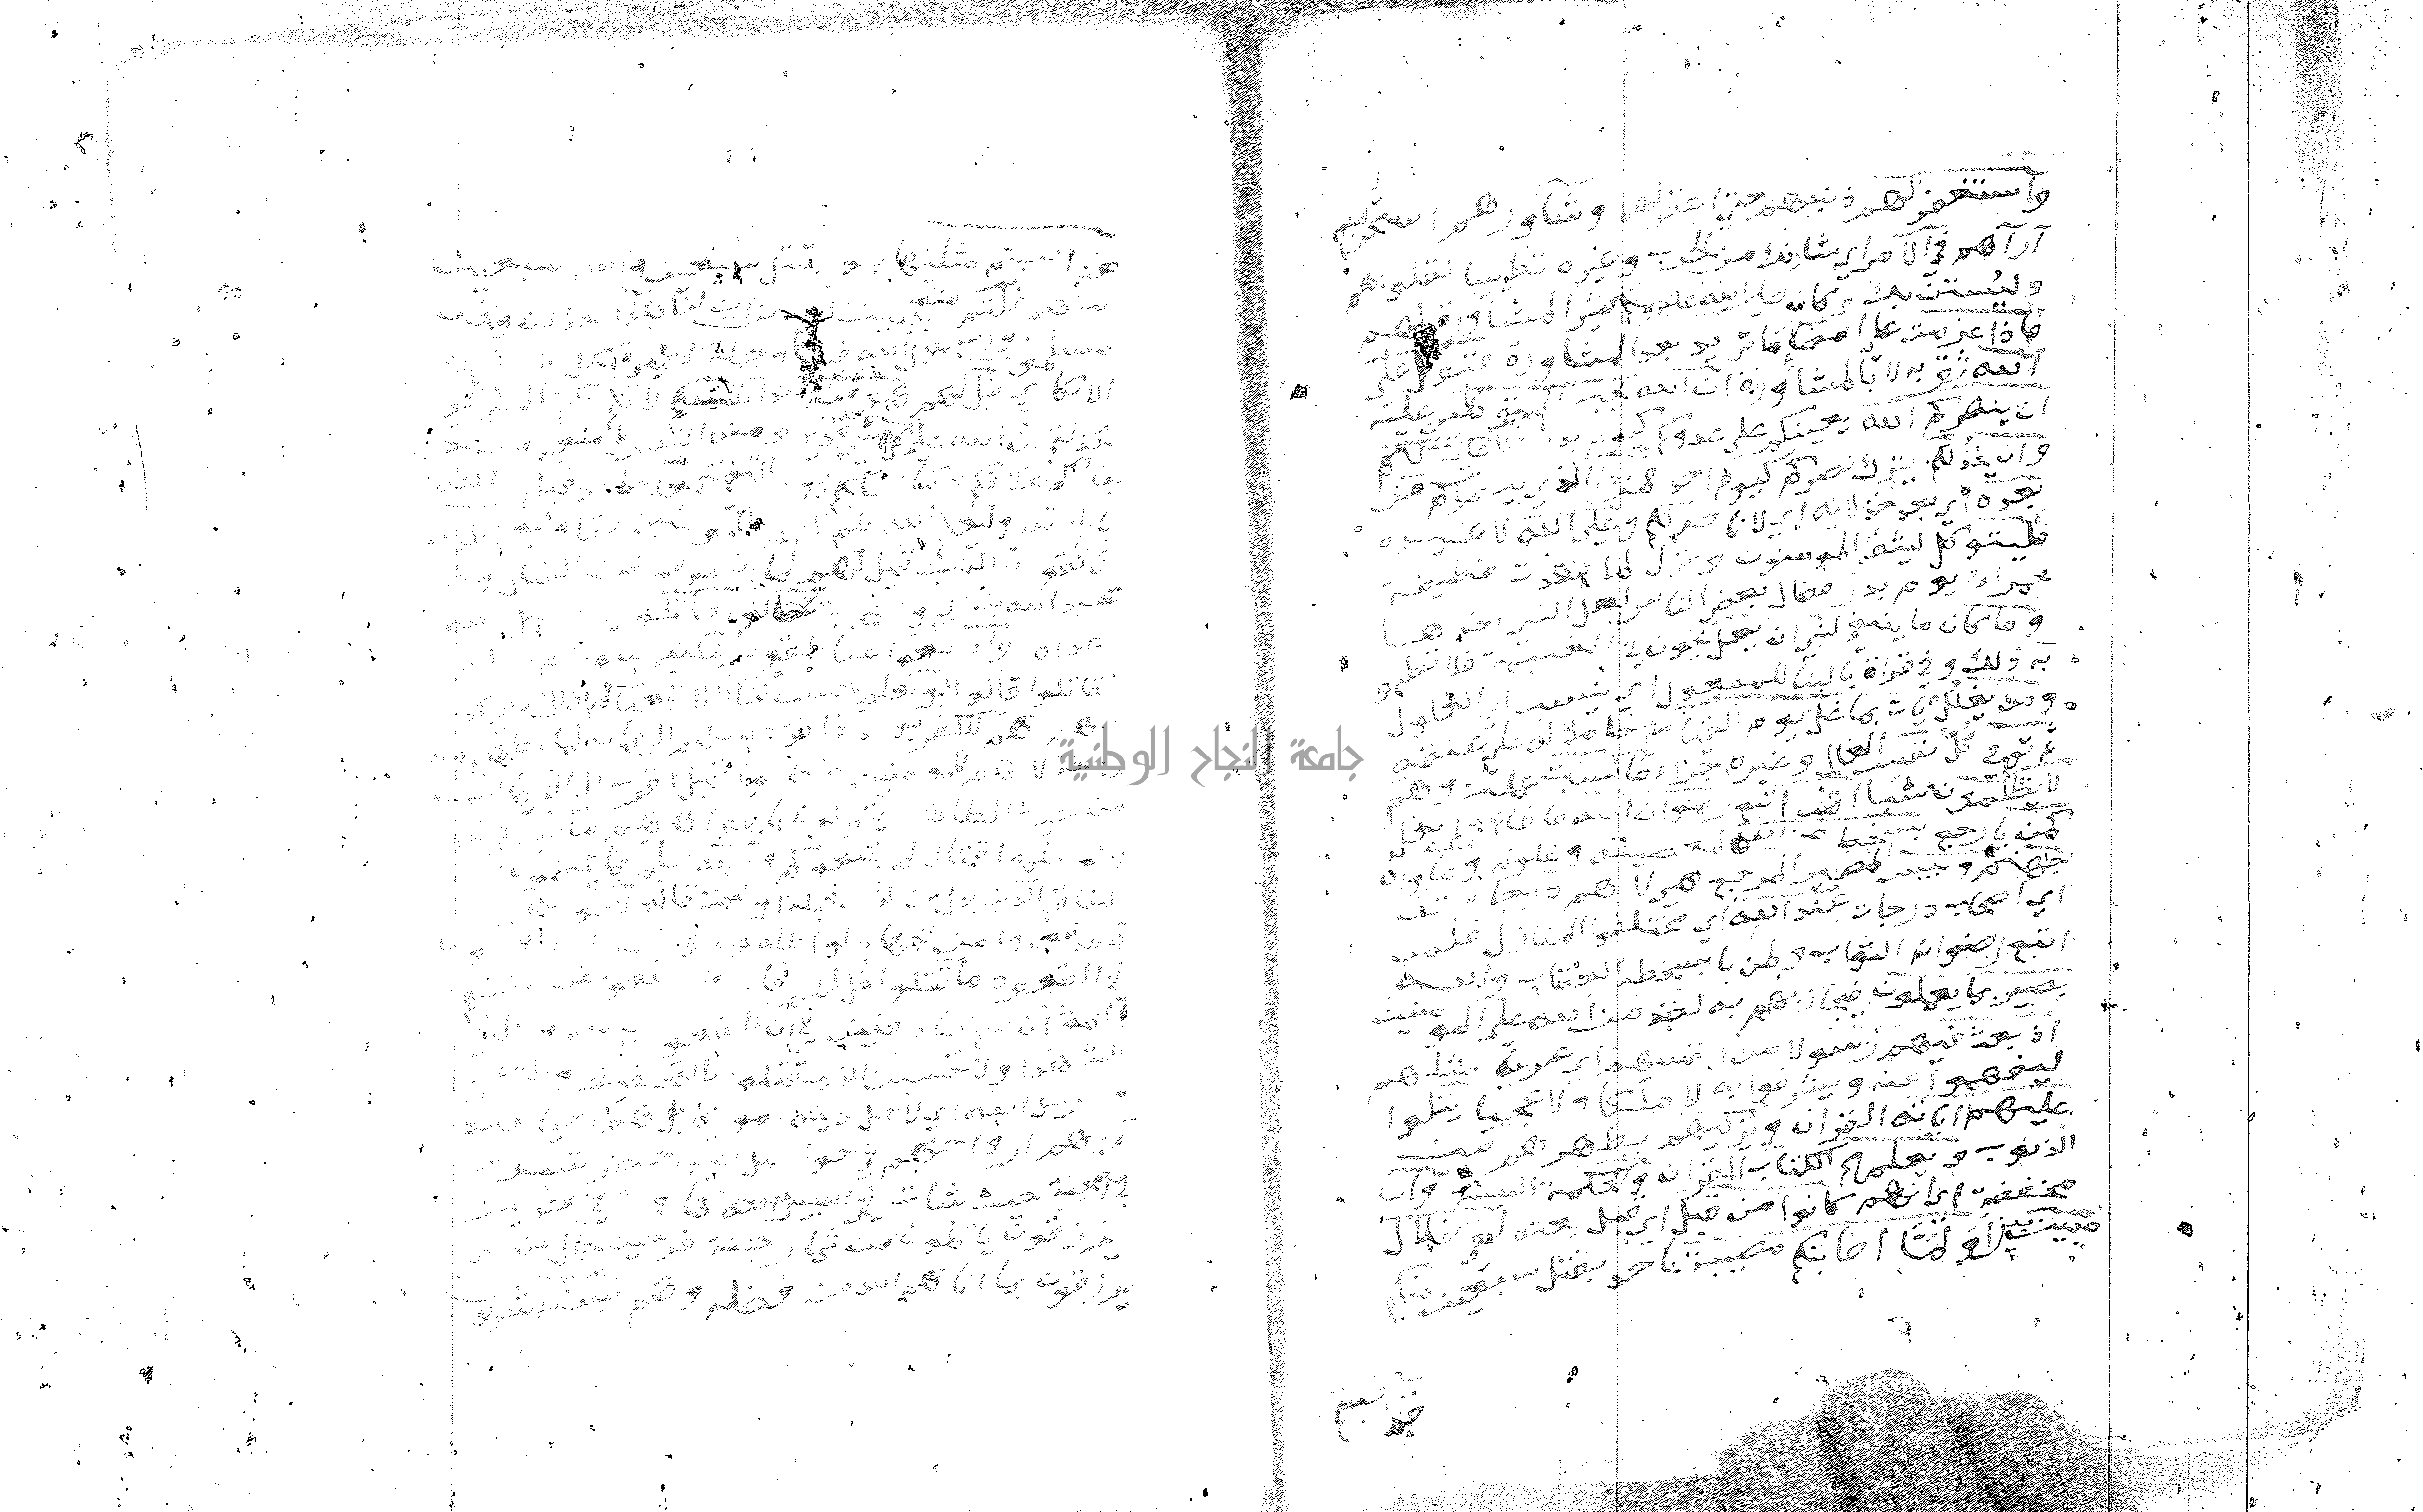 واستغفر لهم ذنبهم حتى اغفر لهم وشاورهم استخرج
آرآهم في الامر اي شانك من الحرب وغيره تطييبا لقلوبهم
وليستن بك وكان صلى الله عليه وسلم كثير المشاورة لهم
فاذا عزمت على امضا ما تريد بعد المشاورة فتوكل على
الله ثق به لا بالمشاورة ان الله يحب المتوكلين عليه
ان ينصركم الله يعينكم على عدوكم كيوم بدر فلا غالب لكم
وان يخذلكم يترك نصركم كيوم احد فمن ذا الذي ينصركم من
بعده اي بعد خذلانه اي لا ناصر لكم وعلى الله لا غيره
فليتوكل ليثق المومنون ونزل لما فقدت قطيفة
حمراء يوم بدر فقال بعض الناس لعل النبي اخذها
وما كان ما ينبغي لنبي ان يغل يخون في الغنيمة فلا تظنوا
به ذلك وفي قراة بالبنا للمفعول اي ينسب الى الغلول
ومن يغلل يات بما غل يوم القيامة حاملا له على عنقه
ثم توفى كل نفس الغال وغيره جزاء ما كسبت عملت وهم
لا يظلمون شيا افمن اتبع رضوان الله فاطاع ولم يغل
كمن باء رجع بسخط من الله لمعصيته وغلوله وماواه
جهنم وبيس المصير المرجع هي لا هم درجات
اي اصحاب درجات عند الله اي مختلفوا المنازل فلمن
اتبع رضوانه الثواب ولمن باء بسخطه العقاب والله
بصير بما يعملون فيجازيهم به لقد من الله على المومنين
اذ بعث فيهم رسولا من انفسهم اي عربيا مثلهم
ليفهموا عنه ويشرفوا به لا ملكا ولا عجميا يتلوا
عليهم اياته القران ويزكيهم يطهرهم من
الذنوب ويعلمهم الكتاب القران والحكمة السنة وان
مخففة اي انهم كانوا من قبل اي قبل بعثه لفي ضلال
مبين بين اولما اصابتكم مصيبة باحد بقتل سبعين منكم
قد اصبتم
قد اصبتم مثليها ببدر بقتل سبعين واسر سبعين
منهم قلتم متعجبين انى من اين لنا هذا الخذلان ونحن
مسلمون ورسول الله فينا والجملة الاخيرة محل
الانكاري قل لهم هو من عند انفسكم لانكم تركتم المركز
فخذلتم ان الله على كل شي قدير ومنه النصر ومنعه
باذن الله
بارادته وليعلم الله علم ظهور المومنين
نافقوا والذين قيل لهم لما انصرفوا عن القتال وهم
عبد الله بن ابي واصحابه تعالوا قاتلوا في سبيل الله
اعداه او ادفعوا عنا القوم بتكثير سوادكم ان لم
تقاتلوا قالوا لو نعلم نحسن قتالا لاتبعناكم قال تعالى
هم للكفر يومئذ اقرب منهم للايمان بما اظهروه
من خذلانهم للمومنين وكانوا قبل اقرب الى الايمان
من حيث الظاهر يقولون بافواههم ما ليس في
ولو علموا قتالا لم يتبعوكم والله اعلم بما يكتمون
النفاق الذين بدل من الذين قبله او نعت قالوا لاخوانهم
وقد قعدوا عن الجهاد لو اطاعونا
في القعود ما قتلوا قل لهم فادرءوا ادفعوا عن انفسكم
الموت ان كنتم صادقين في ان القعود ينجي منه ونزل في
الشهدا ولا تحسبن الذين قتلوا بالتخفيف والتشديد
في سبيل الله اي لاجل دينه امواتا بل هم احيا عند
ربهم ارواحهم في حواصل طيور خضر تسرح
في الجنة حيث شات
يرزقون ياكلون من ثمار الجنة فرحين حال من
يرزقون بما اتاهم الله من فضله وهم يستبشرون
جامعة النجاح الوطنية